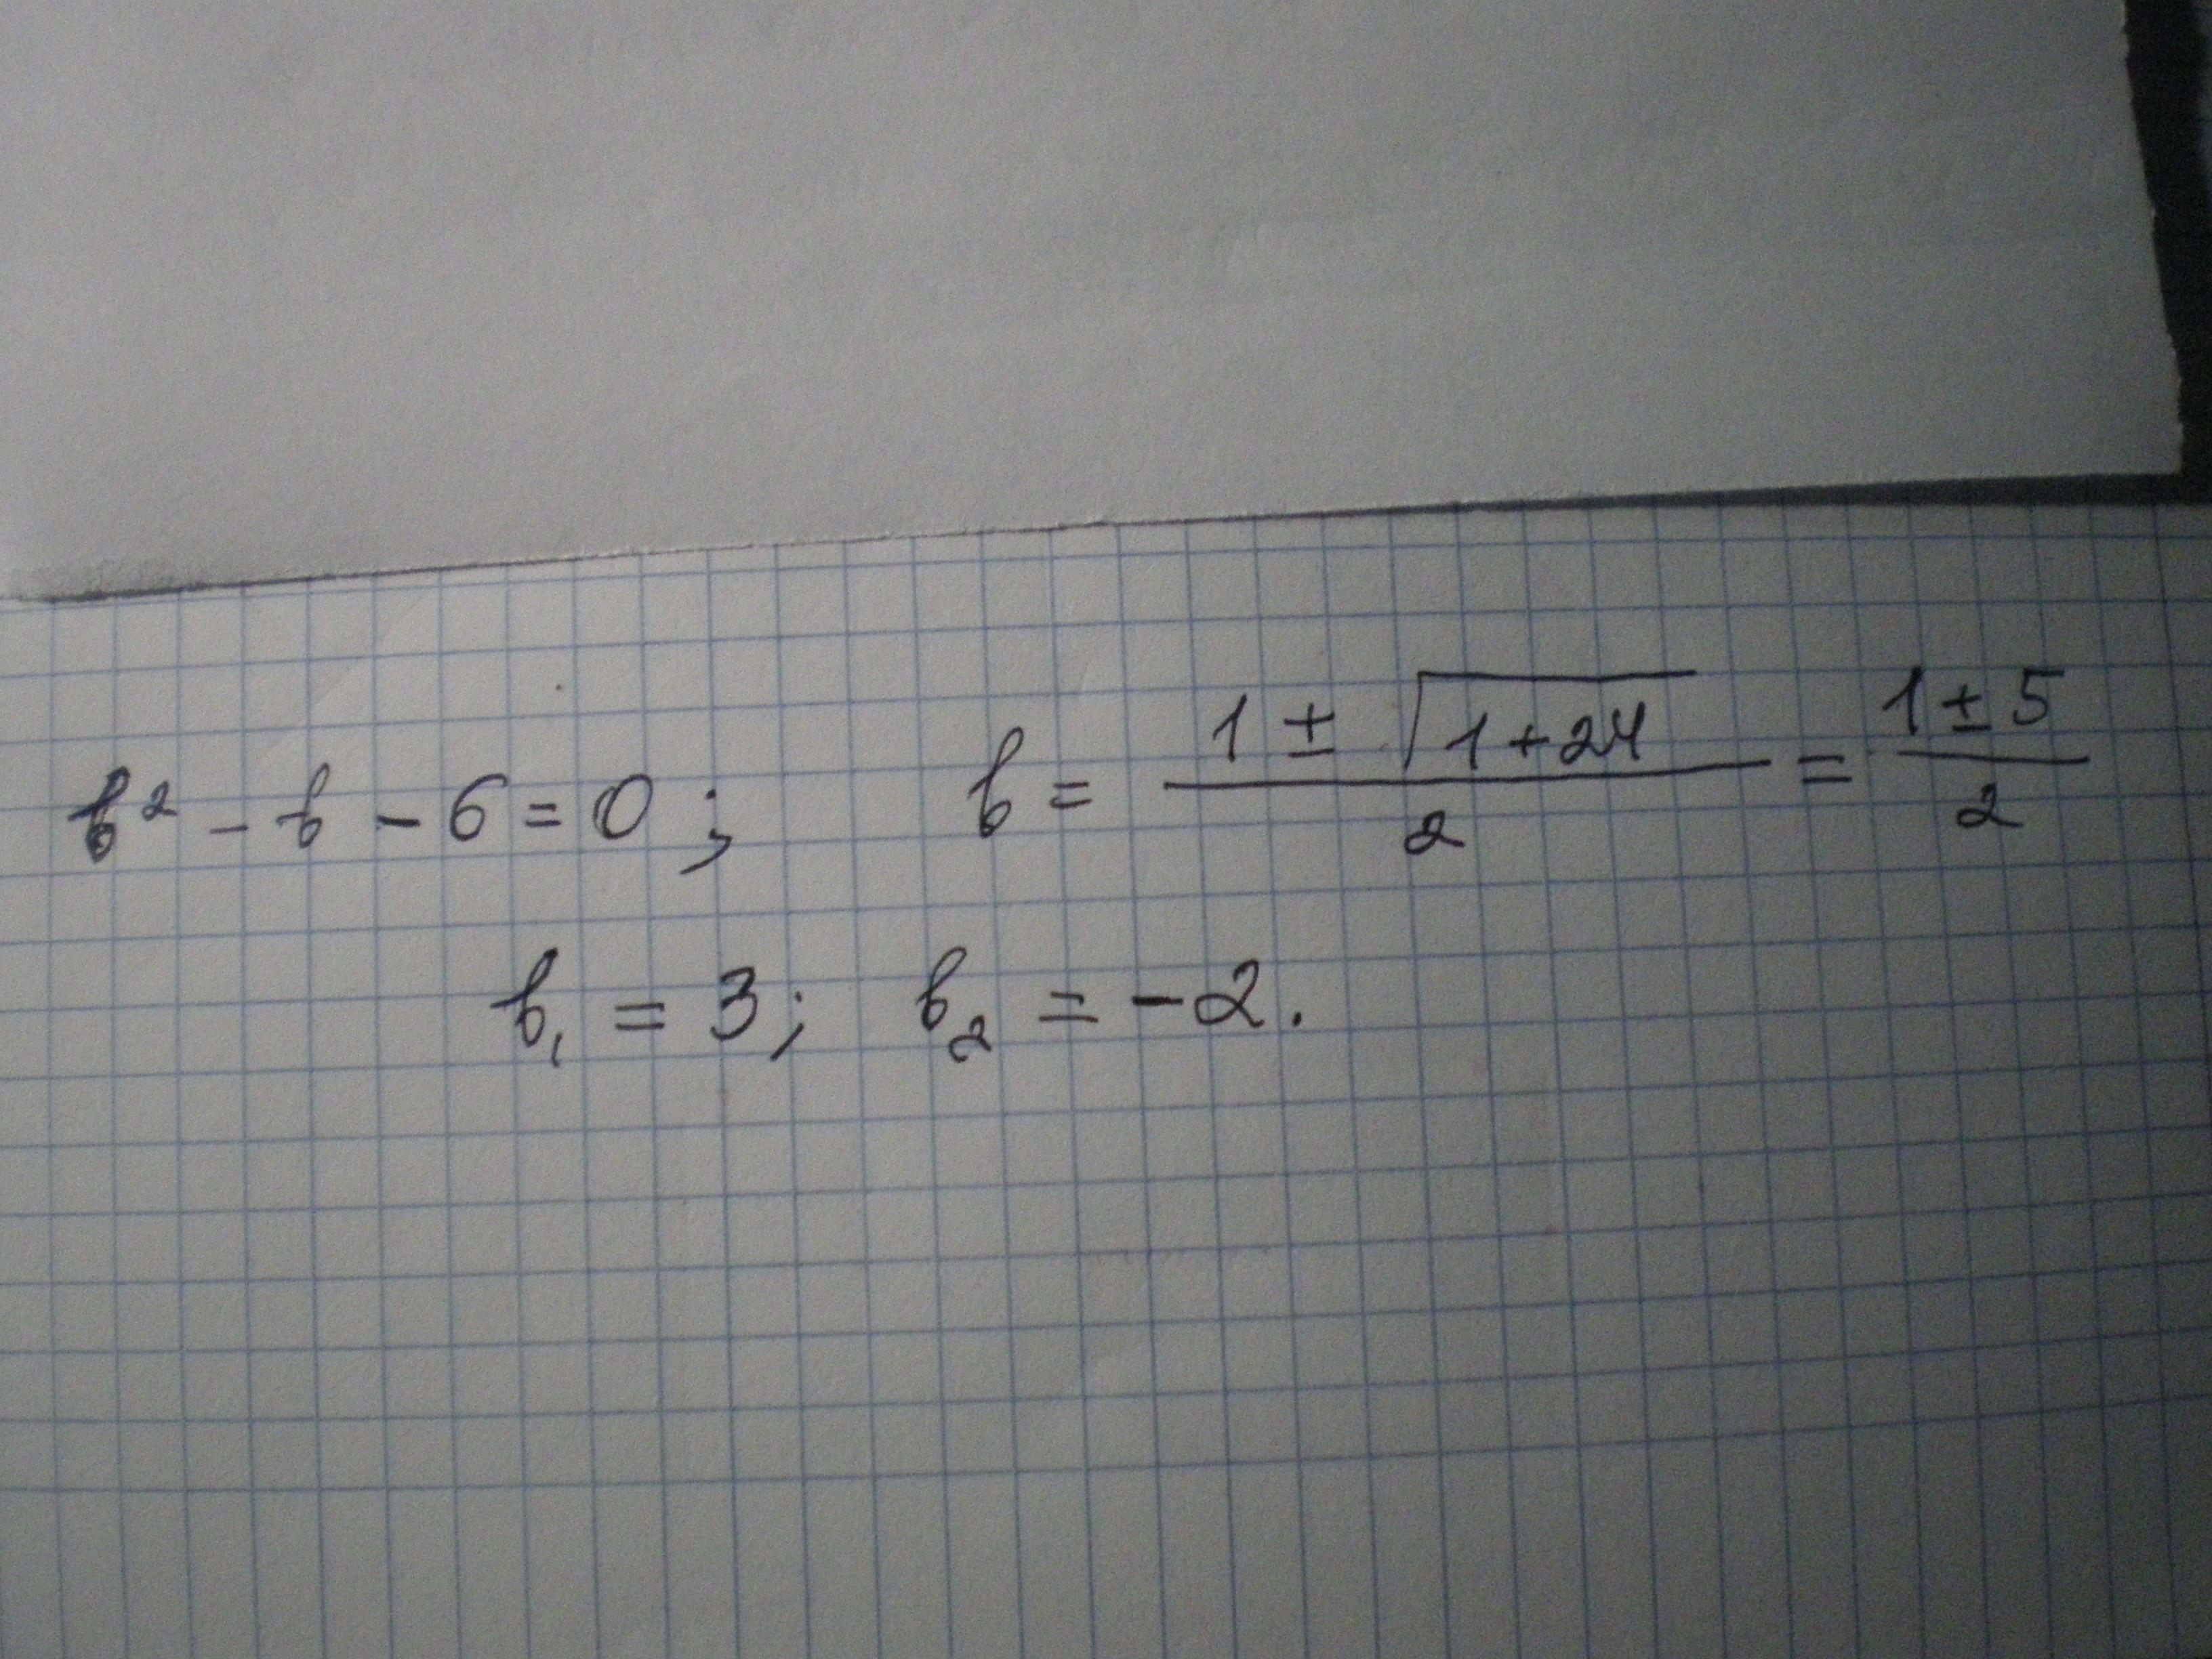 b² - b - 6 = 0 ; b = (1 ± √(1+24))/2 = (1 ± 5)/2
b₁ = 3 ; b₂ = -2 .